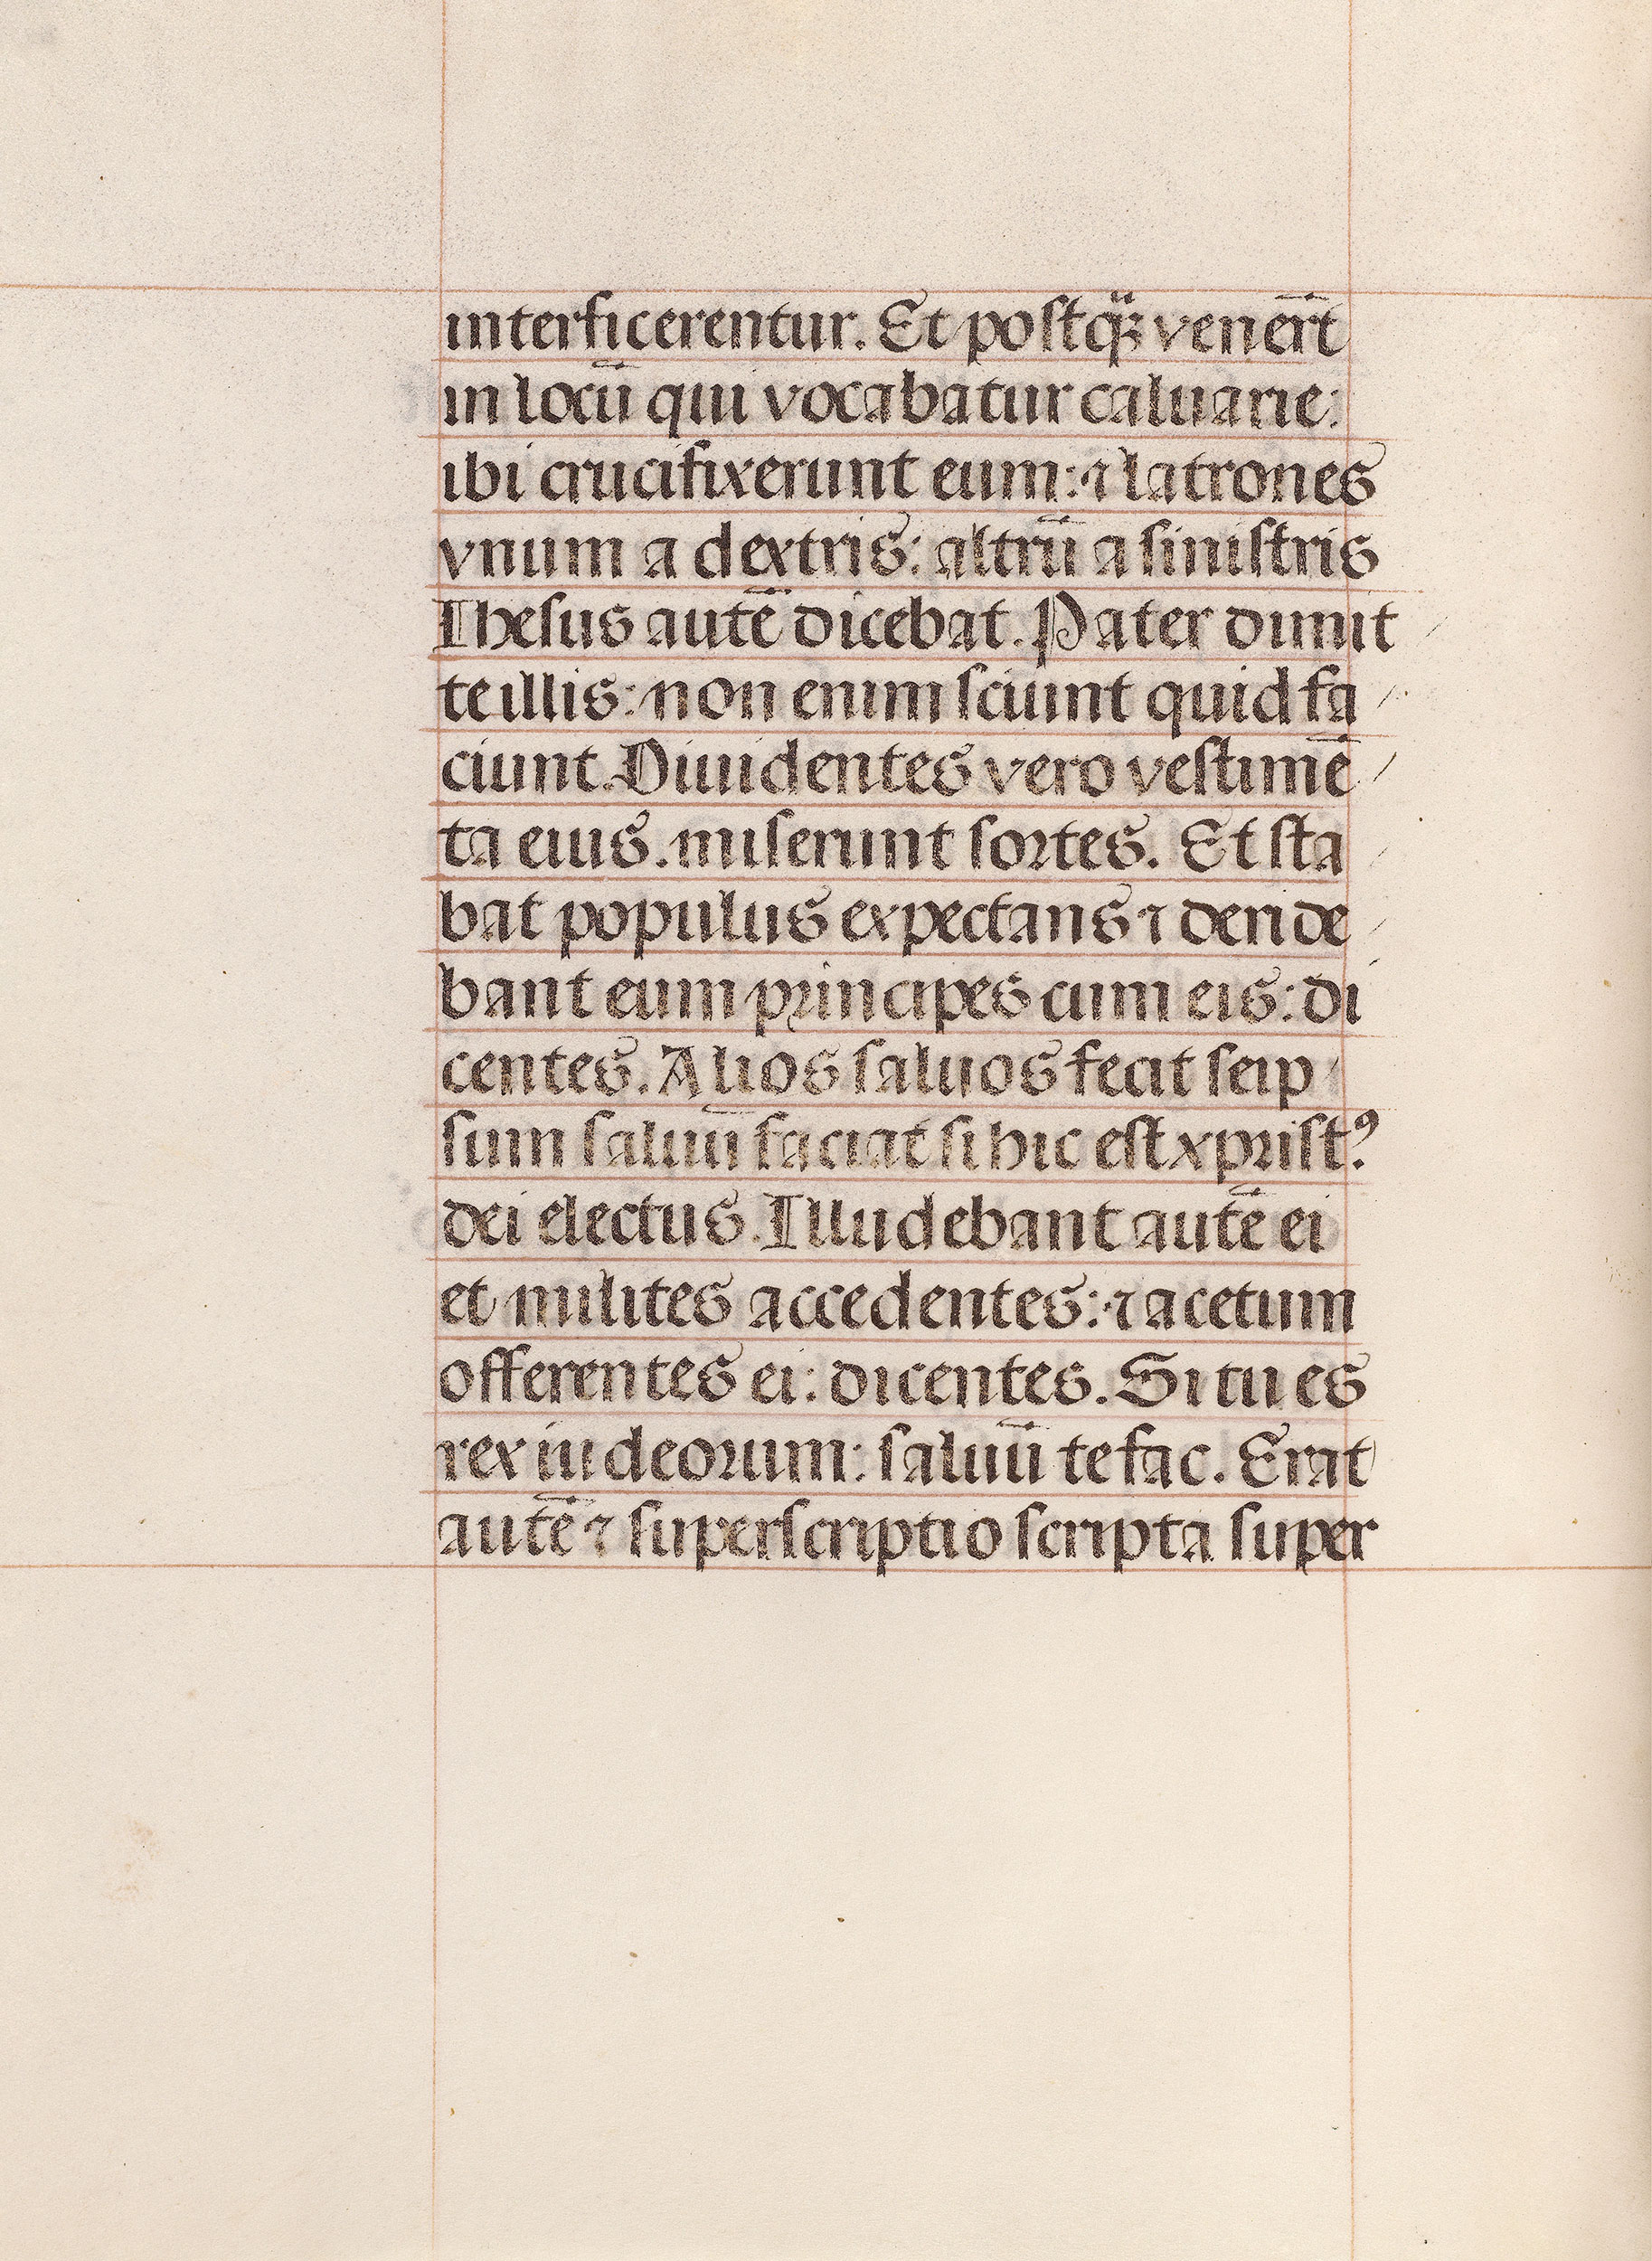 interficerentur. Et postq̈ꝫ venert̄
in locū qui vocabatur caluarie:
ibi crucifixerunt eum: ⁊ latrones
vnum a dextris: altrū a sinistris
Ihesus autē dicebat. Pater dimit
te illis: non enim sciunt quid fa
ciunt. Diuidentes vero vestimē
ta eius. miserunt sortes. Et sta
bat populus expectans ⁊ deride
bant eum principes cum eis: di
centes. Alios saluos fecit seip
sum saluū faciat si hic est xpristꝰ
dei electus. Illudebant autē ei
et milites accedentes: ⁊ acetum
offerentes ei: dicentes. Si tu es
rex iudeorum: saluū te fac. Erat
autē ⁊ superscriptio scripta super